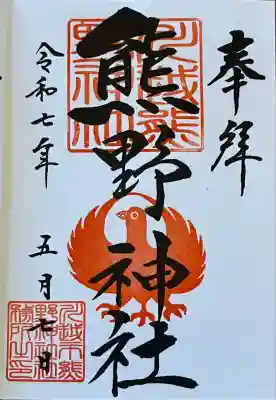 奉拝
熊野神社
令和七年
五月七日
川越熊
野神社